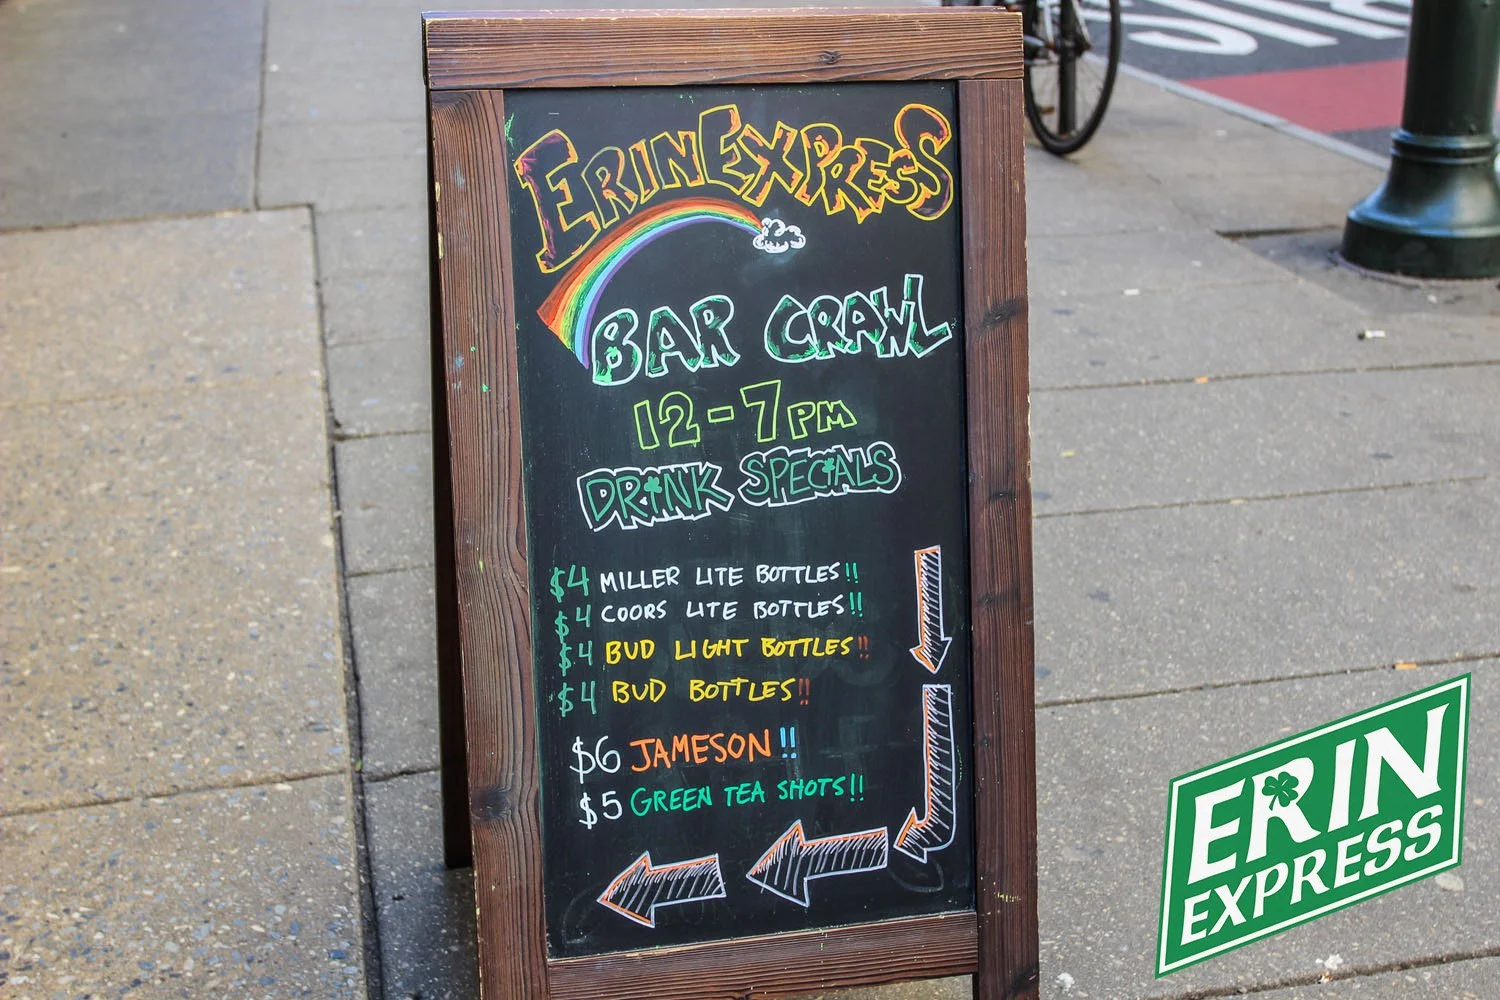 ERIN EXPRESS
BAR CRAWL
12-7PM
DRINK SPECIALS
$4 MILLER LITE BOTTLES!!
$4 COORS LITE BOTTLES!!
$4 BUD LIGHT BOTTLES!!
$4 BUD BOTTLES!!
$6 JAMESON!!
$5 GREEN TEA SHOTS!!
ERIN
EXPRESS